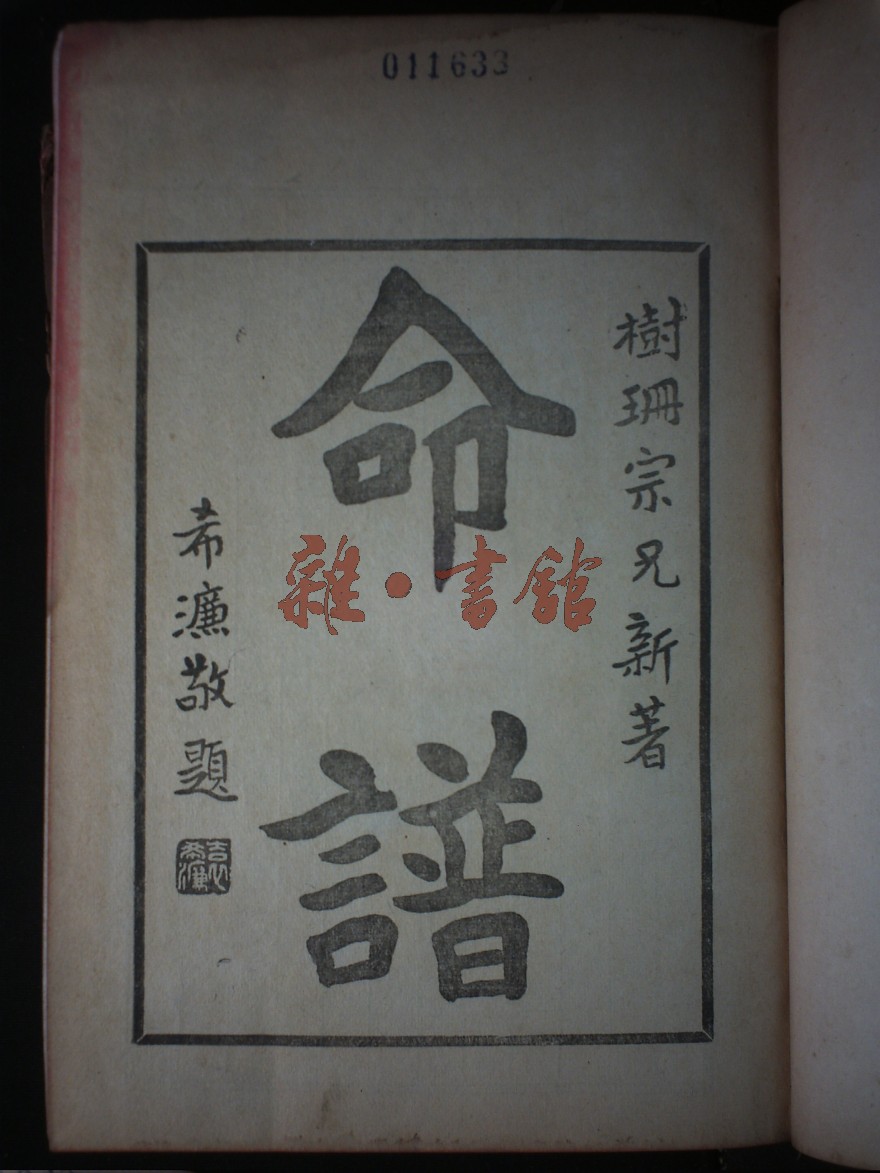 011633
樹珊宗兄新著
命譜
希濂敬題
袁希濂
雜·書館